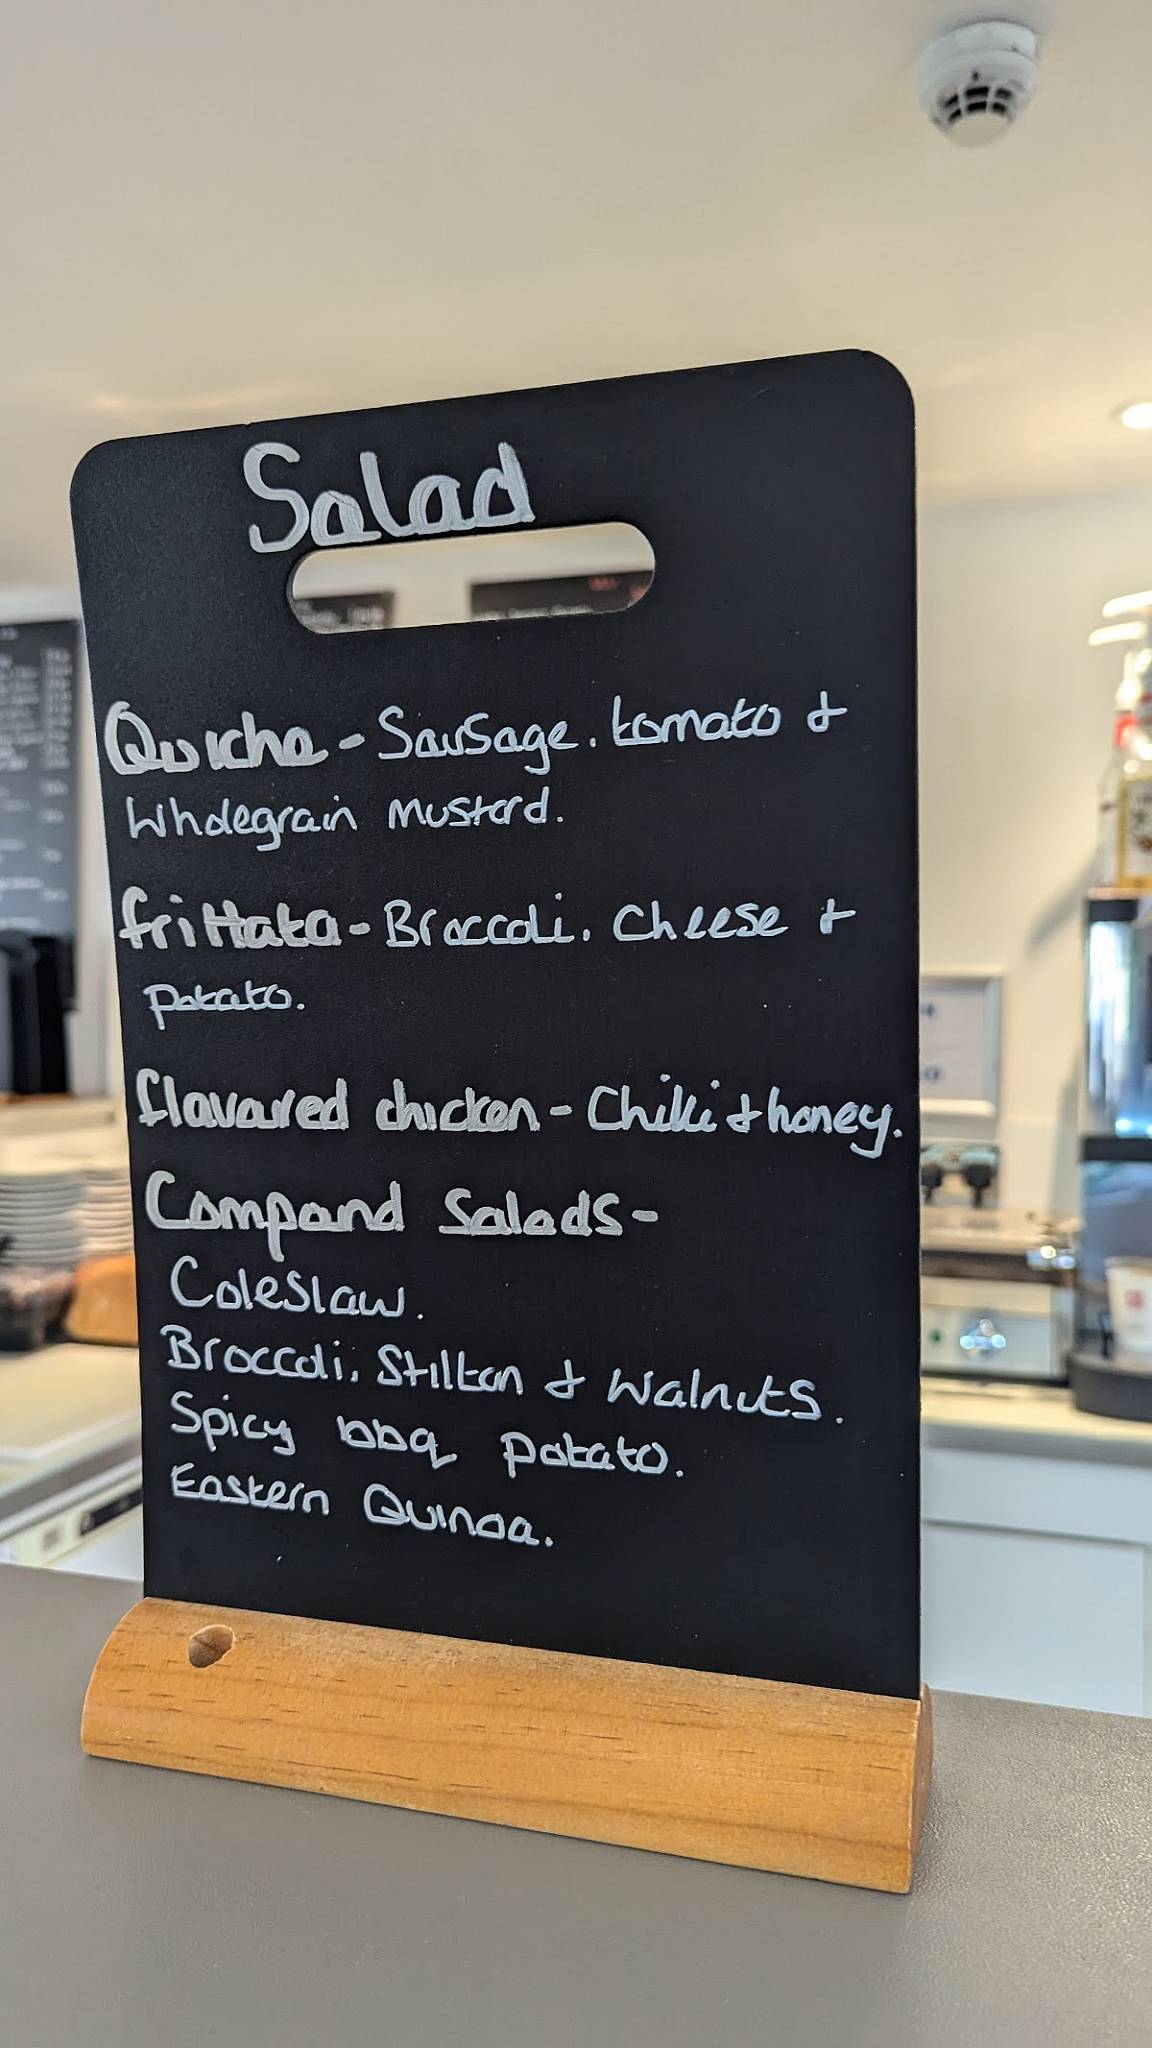 Salad
Quiche - Sausage. tomato &
Wholegrain mustard.
frittata - Broccoli. Cheese &
potato.
flavoured chicken - Chilli & honey.
Compound Salads -
Coleslaw.
Broccoli. Stilton & Walnuts.
Spicy bbq potato.
Eastern Quinoa.